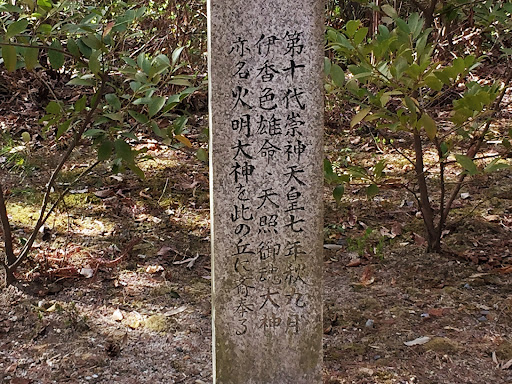 第十代崇神天皇七年秋九月
伊香色雄命、天照御魂大神
亦名火明大神を此の丘に斎奉る